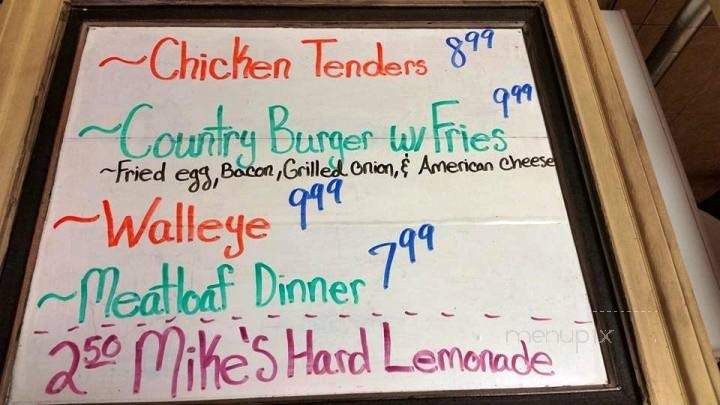 ~Chicken Tenders 8.99
~Country Burger w/ Fries 9.99
~Fried egg, Bacon, Grilled Onion, & American cheese
~Walleye 9.99
~Meatloaf Dinner 7.99
2.50 Mike's Hard Lemonade
menupix